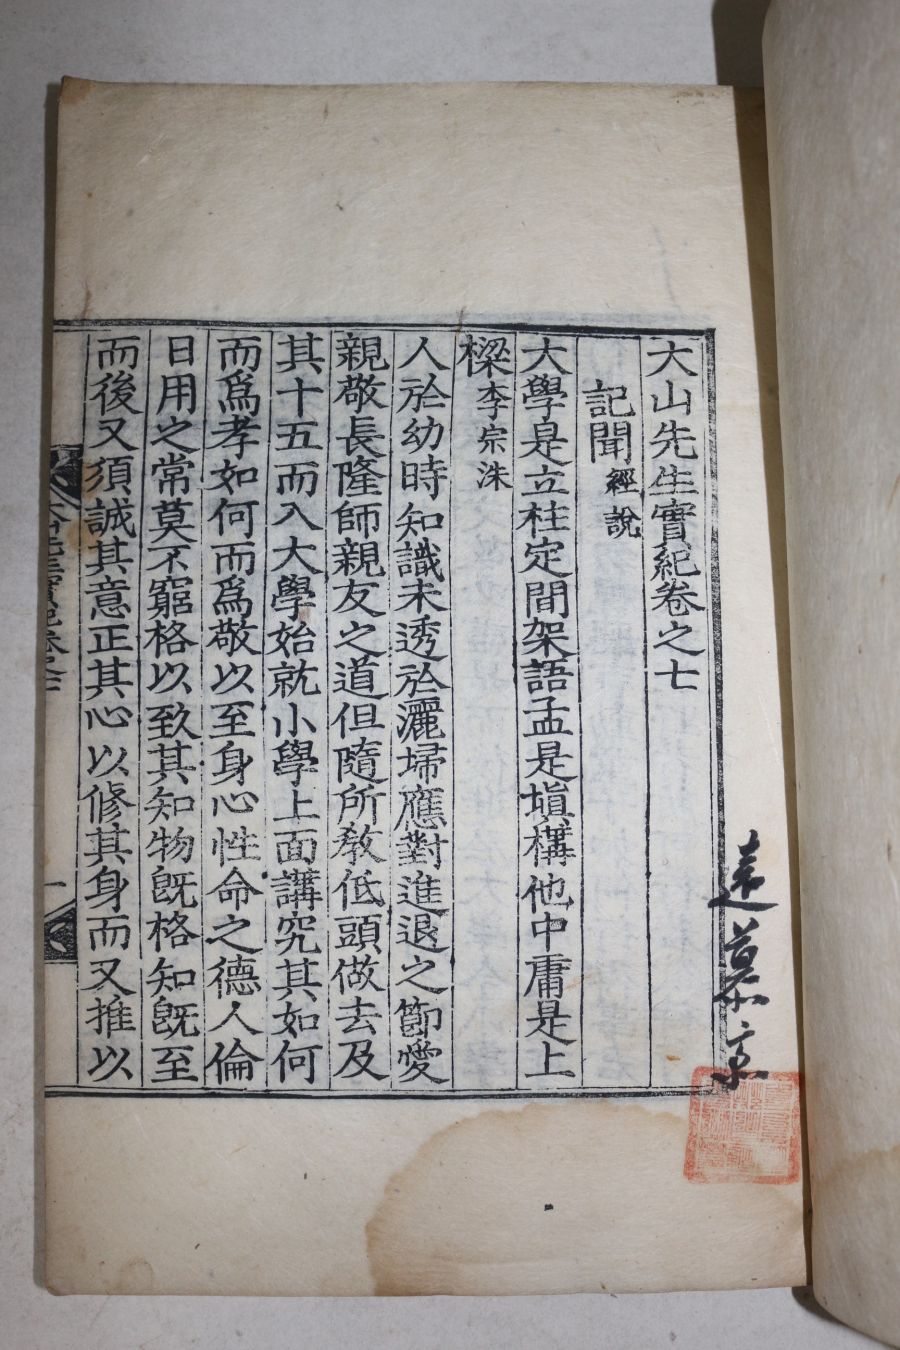 大山先生實紀卷之七
記聞經說
大學是立柱定間架語孟是塡構他中庸是上
樑李宗洙
人於幼時知識未透於灑埽應對進退之節愛
親敬長隆師親友之道但隨所敎低頭做去及
其十五而入大學始就小學上面講究其如何
而爲孝如何而爲敬以至身心性命之德人倫
日用之常莫不窮格以致其知物旣格知旣至
而後又須誠其意正其心以修其身而又推以
遠慕亭